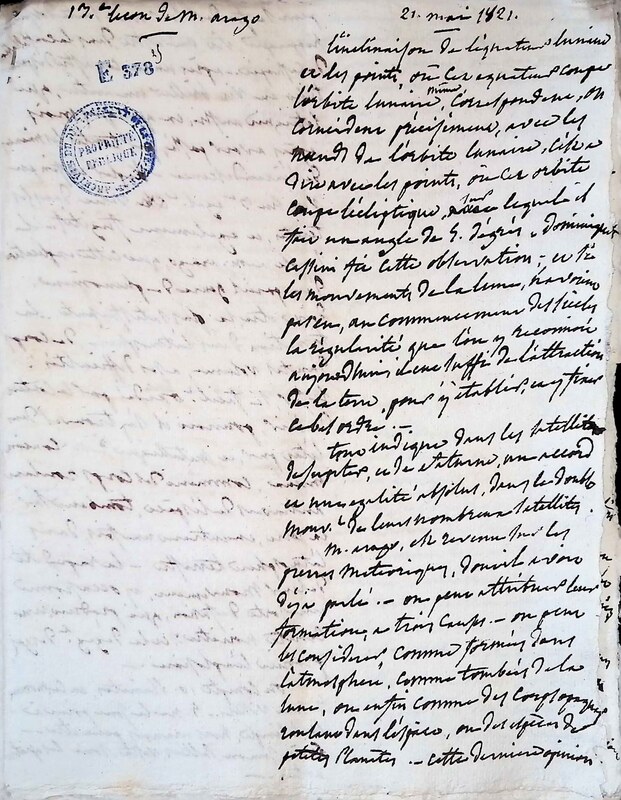 17.e leçon de m. arago
21. mai 1821.
E 378
15
PROPRIÉTÉ
PUBLIQUE
l'inclinaison de l'équateur lunaire
et les points, où cet équateur coupe
l'orbite lunaire même, correspondent, ou
coincident précisément, avec les
nœuds de l'orbite lunaire, c'est a
dire avec les points, où cet orbite
coupe l'écliptique, sur laquelle il
fait un angle de 5. degrés. Dominique
Cassini a fait cette observation - et si
les mouvements de la lune, n'avoient
pas eu, au commencement des siècles
la régularité que l'on y reconnoit
aujourd'hui, il eut suffi de l'attraction
de la terre, pour y établir, et y fixer
ce bel ordre. -
tout indique dans les satellites
de jupiter, et de saturne, un accord
et une égalité absolus, dans le double
mouv.t de leurs nombreux satellites.
m. arago, est revenu sur les
pierres météoriques, dont il avoit
déja parlé. - on peut attribuer leur
formation, a trois causes - on peut
les considérer comme formées dans
l'atmosphere, comme tombées de la
lune, ou enfin comme des corps
roulant dans l'espace, ou des espèces de
petites Planètes. - cette dernière opinion